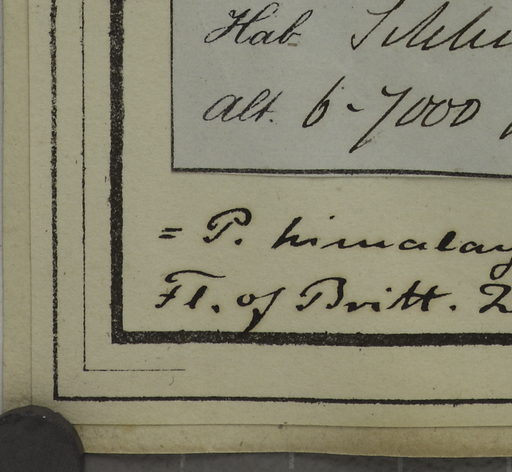 Hab Sikki
alt. 6-7000
= P. himalay
Fl. of Britt.